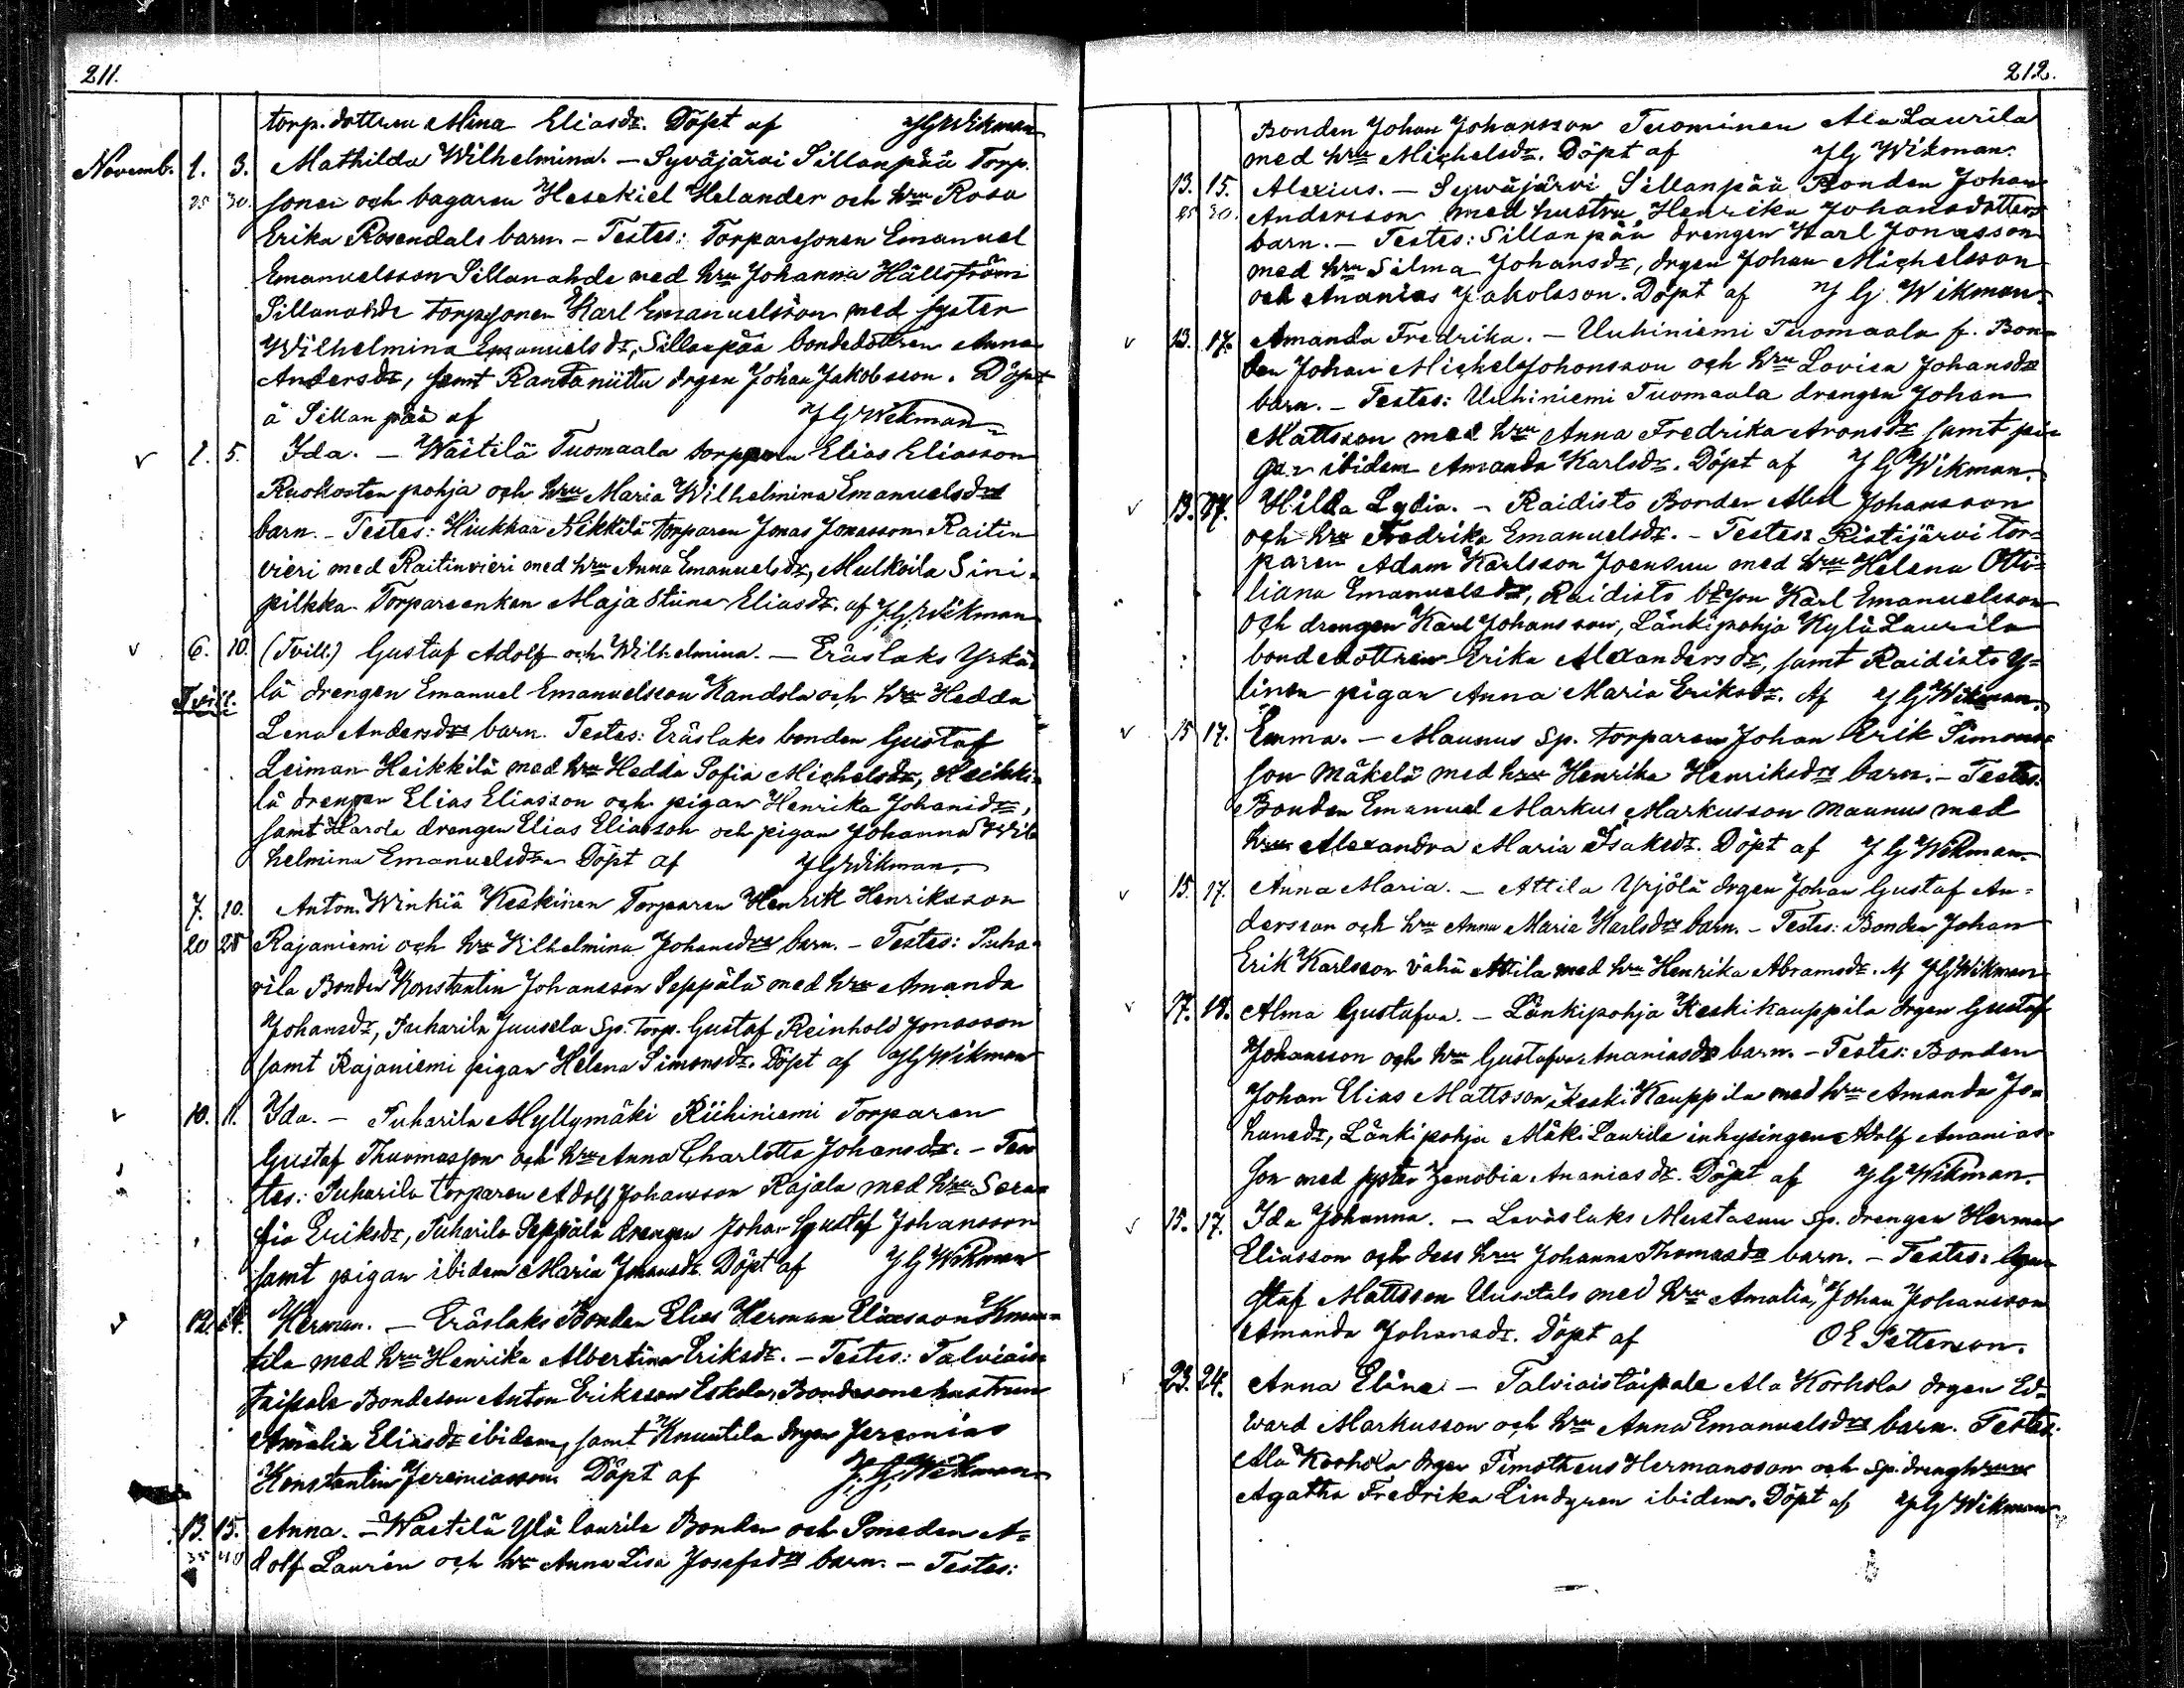 211.
torp. dottren Mina Eliasdr. Döpt af JGWikman
Novemb. 1. 3. Mathilda Wilhelmina. – Syväjärvi Sillanpää Torp.
25 30. sonen och bagaren Hesekiel Helander och hru Rosa
Erika Rosendals barn. – Testes: Torparesonen Emanuel
Emanuelsson Sillanahde med hru Johanna Hällström
Sillanahde torpsonen Karl Emanuelsson med syster
Wilhelmina Emanuelsdr, Sillanpää bondedottren Anna
Andersdr, samt Rantaniittu drgen Johan Jakobsson. Döpt
å Sillanpää af JGWikman
v 1. 5. Ida. – Wästilä Tuomaala torparen Elias Eliasson
Ruokosten pohja och hru Maria Wilhelmina Emanuelsdrs
barn. – Testes: Hiukkaa Nikkilä torparen Jonas Jonasson Raitin
vieri med Raitinvieri med hru Anna Emanuelsdr, Mulkoila Sini-
pilkka Torpareenkan Maja Stina Eliasdr. af J.G.Wikman
v 6. 10. (Tvill.) Gustaf Adolf och Wilhelmina. – Eräslaks Yrkä-
Tvill. lä drengen Emanuel Emanuelsson Kandola och hru Hedda
Lena Andersdrs barn. Testes: Eräslaks bonden Gustaf
Leiman Heikkilä med hru Hedda Sofia Michelsdr, Heikki-
lä drengen Elias Eliasson och pigan Henrika Johansdr,
samt Harola drengen Elias Eliasson och pigan Johanna Wil-
helmina Emanuelsdr Döpt af JGWikman.
7. 10. Anton. Winkiä Keskinen Torparen Henrik Henriksson
20 25 Rajaniemi och hru Wilhelmina Johansdrs barn. – Testes: Juha-
rila Bonden Konstantin Johansson Seppälä med hru Amanda
Johansdr, Juharila Juusela Sp. torp. Gustaf Reinhold Jonasson
samt Rajaniemi pigan Helena Simonsdr. Döpt af JGWikman
v 10. 11. Ida. – Juharila Myllymäki Riihiniemi Torparen
Gustaf Thuomasson och hru Anna Charlotta Johansdr. – Tes-
tes: Juharila torparen Adolf Johansson Rajala med hru Sera-
fia Eriksdr, Juharila Seppälä drengen Johan Gustaf Johansson
samt pigan ibidem Maria Johansdr. Döpt af JG Wikman
v 12. 14. Herman. – Eräslaks Bonden Elias Herman Eliasson Knuu-
tila med hru Henrika Albertina Eriksdr. – Testes: Talviais-
taipale Bondeson Anton Eriksson Eskola, Bondesons hustrun
Amalia Eliasdr ibidem, samt Knuutila drgen Jeremias
Konstantin Jeremiasson Döpt af J.G.Wikman
13. 15. Anna. – Wästilä Ylä Laurila Bonden och Smeden A-
35 40 dolf Laurén och hru Anna Lisa Josefsdrs barn. – Testes:
212.
Bonden Johan Johansson Tuominen Ala Laurila
med hru Michelsdr. Döpt af JG Wikman.
13. 15. Alexius. – Syväjärvi Sillanpää Bonden Johan
25 30. Andersson med hustru Henrika Johansdotters
barn. – Testes: Sillanpää drengen Karl Jonasson
med hru Silma Johansdr, drgen Johan Michelsson
och Ananias Jakobsson. Döpt af J G Wikman
v 13. 17. Amanda Fredrika. – Uuhiniemi Tuomaala f. Bon-
den Johan Michel Johonsson och hru Lovisa Johansdrs
barn. – Testes: Uuhiniemi Tuomaala drengen Johan
Mattsson med hru Anna Fredrika Aronsdr samt pi-
gan ibidem Amanda Karlsdr. Döpt af J G Wikman.
v 13. 17. Hilda Lydia. – Raidisto Bonden Abel Johansson
och hru Fredrika Emanuelsdr. – Testes: Ristijärvi tor-
paren Adam Karlsson Joensuu med hru Helena Otti-
liana Emanuelsdr, Raidisto bdson Karl Emanuelsson
och drengen Karl Johansson, Länkipohja Kylä Laurila
bondedottren Erika Alexandersdr, samt Raidisto Y-
linen pigan Anna Maria Eriksdr. Af J G Wikman.
v 15 17. Emma. – Maunus Sp. torparen Johan Erik Simons-
son Mäkelä med hru Henrika Henriksdrs barn. – Testes:
Bonden Emanuel Markus Markusson Maunus med
hru Alexandra Maria Isaksdr. Döpt af J G Wikman.
v 15. 17. Anna Maria. – Attila Yrjölä drgen Johan Gustaf An-
dersson och hru Anna Maria Karlsdrs barn. – Testes: Bonden Johan
Erik Karlsson vähä Attila med hru Henrika Abramsdr. Af JGWikman
v 17. 18. Alma Gustafva. – Länkipohja Keskikauppila drgen Gustaf
Johansson och hru Gustafva Ananiasdrs barn. – Testes: Bonden
Johan Elias Mattsson Keski Kauppila med hru Amanda Jo-
hansdr, Länkipohja Mäki Laurila inhysingen Adolf Ananias-
son med syster Zenobia Ananiasdr. Döpt af JG Wikman.
v 15. 17. Ida Johanna. – Leväslaks Mustasuu Sp. drengen Herman
Eliasson och dess hru Johanna Thomasdrs barn. – Testes: Gu-
staf Mattsson Uusitalo med hru Amalia, Johan Johansson
Amanda Johansdr. Döpt af OE Petterson.
23. 24. Anna Elina – Talviaistaipale Ala Korhola drgen Ed-
ward Markusson och hru Anna Emanuelsdrs barn. Testes:
Ala Korhola drgen Timotheus Hermansson och sp. drenghrun
Agatha Fredrika Lindgren ibidem. Döpt af JG Wikman